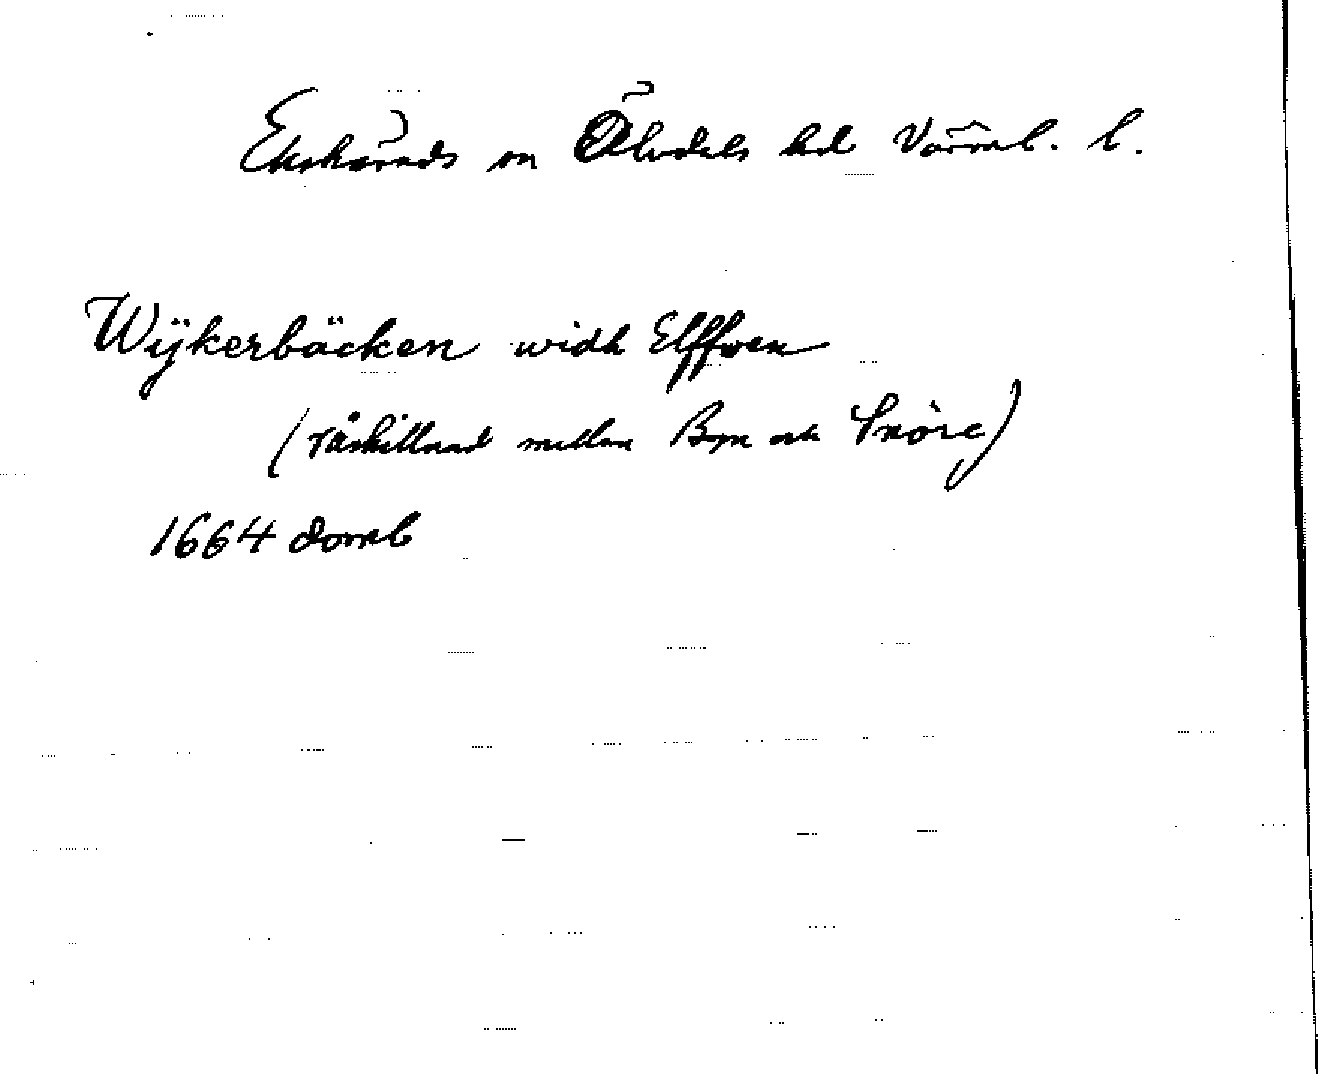 Ekshärads sn Älvdals hd Värml. l.
Wÿkerbäcken widh Elffwen
(råskillnad mellan Byn och Snöre)
1664 domb